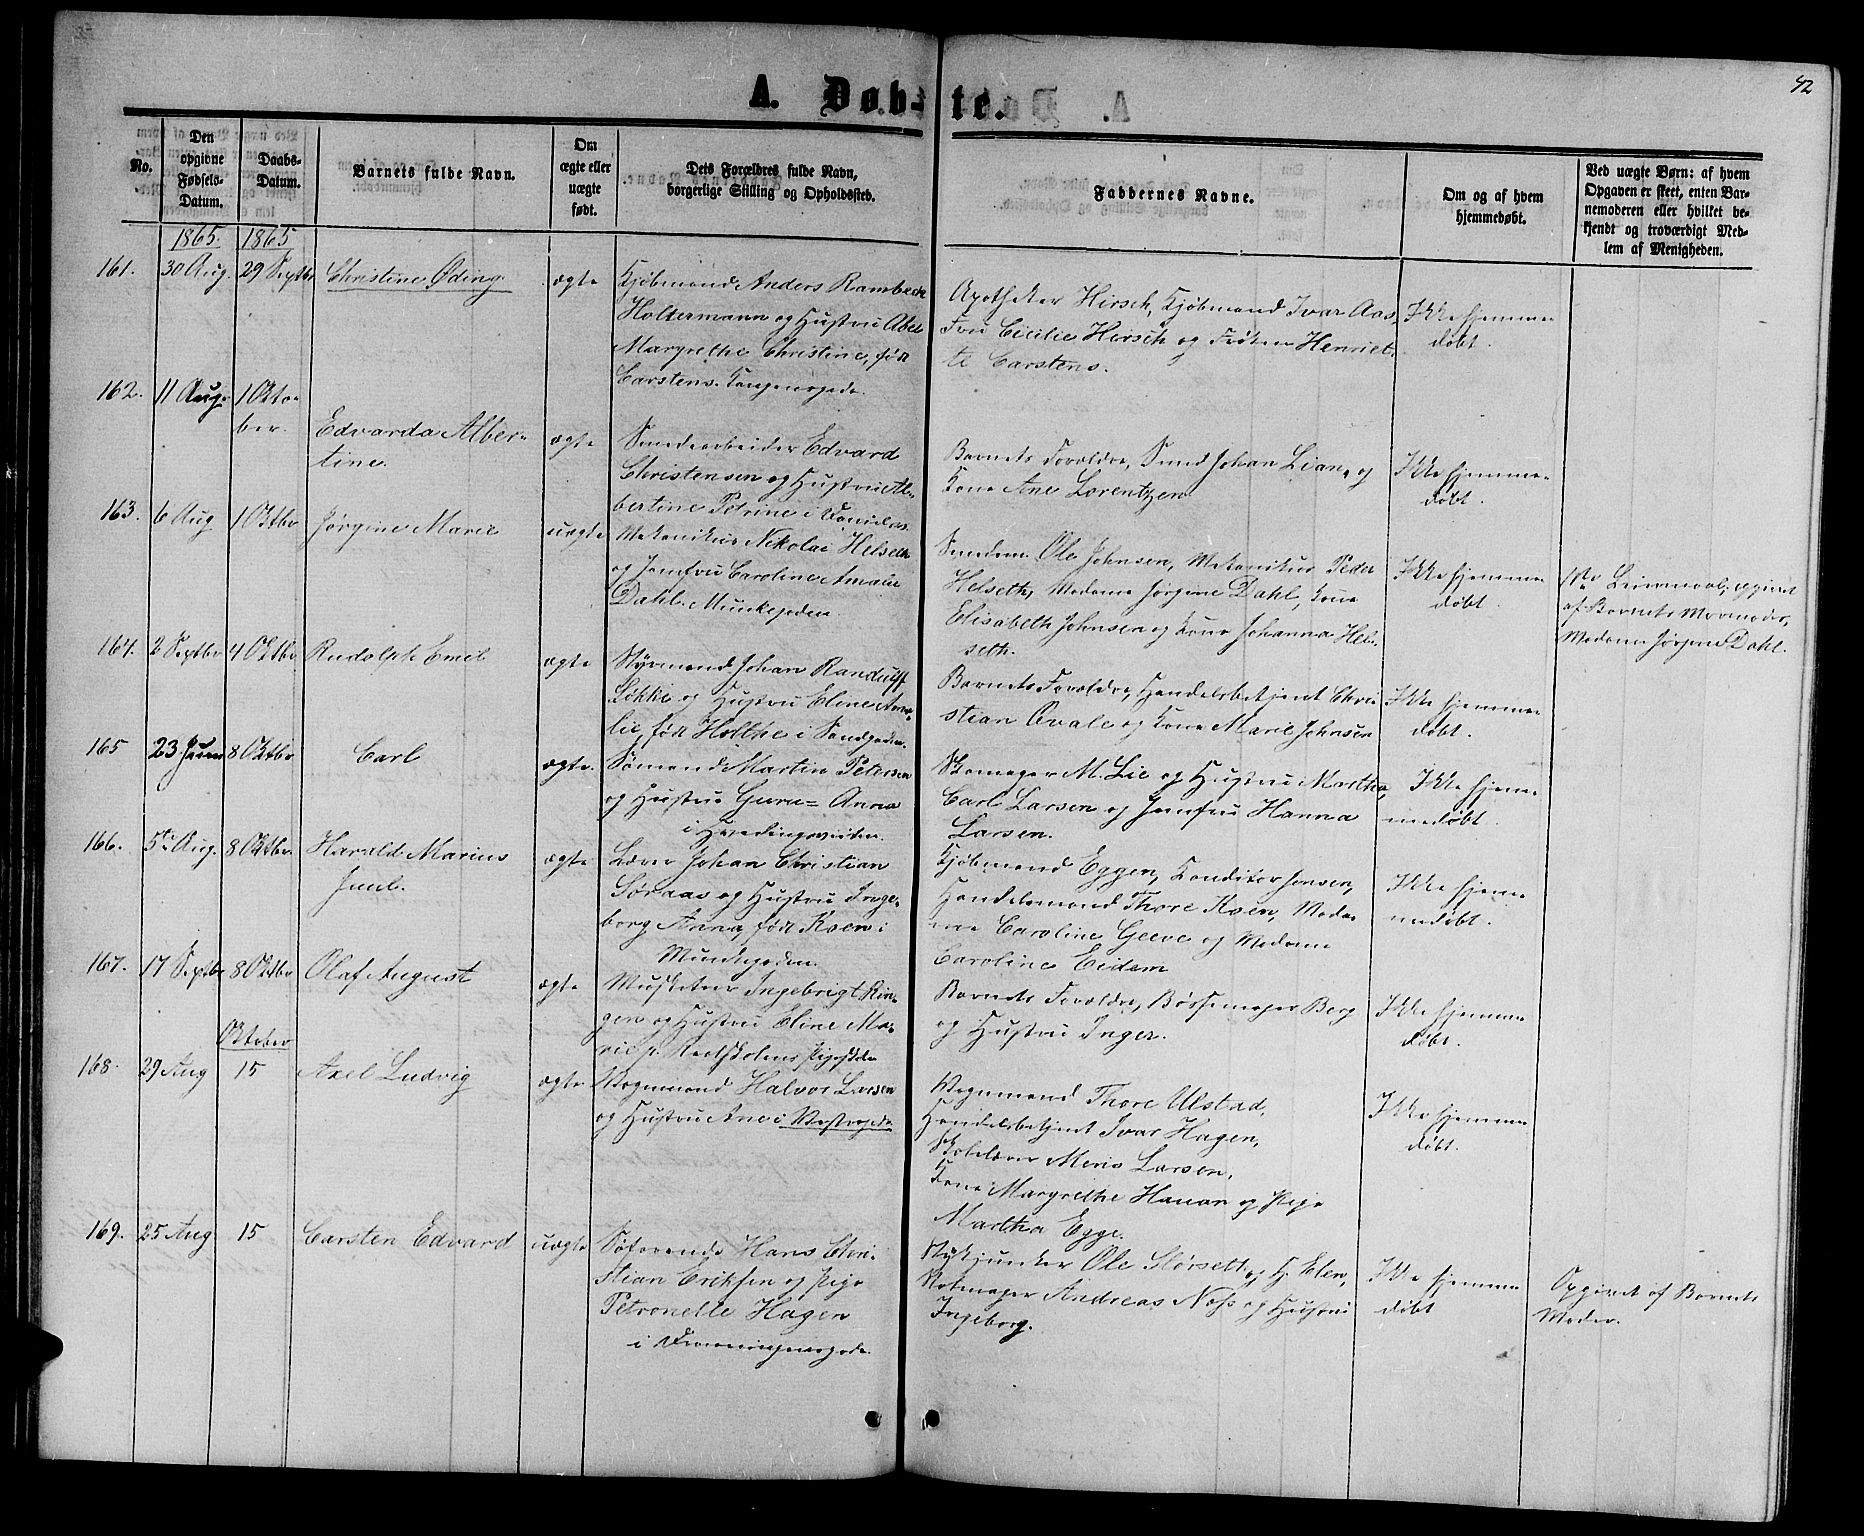 42
A. Døb-te.
No.
Den opgivne Fødsels-Datum.
Daabs-Datum.
Barnets fulde Navn.
Om ægte eller uægte født.
Dets Forældres fulde Navn, borgerlige Stilling og Opholdssted.
Faddernes Navne.
Om og af hvem hjemmedøbt.
Ved uægte Børn: af hvem Opgaven er skeet, enten Barnemoderen eller hvilket bekjendt og troværdigt Medlem af Menigheden.
1865. 1865
161. 30 Aug. 29 Septbr Christine Øding. ægte
Kjøbmand Anders Rambech
Holtermann og Hustru Abel
Margrethe Christine, født
Carstens. Kongensgade.
Apotheker Hirsch, Kjøbmand Ivar Aas,
Fru Cicilie Hirsch og Frøken Henriet-
te Carstens.
Ikke hjemme-
døbt.
162. 11 Aug. 1 Okto-
ber.
Edvarda Alber-
tine.
ægte
Smedearbeider Edvard
Christensen og Hustru Al-
bertine Petrine i
Barnets Forældre, Smed Johan Lian, og
Kone Ane Lorentzen
Ikke hjemme-
døbt.
163. 6 Aug 1 Oktbr Jørgine Marie uægte
Mekanikus Nikolai Helseth
og Jomfru Caroline Amalie
Dahl. Munkegaden
Smedsv. Ole Johnsen, Mekanikus Peder
Helseth, Madame Jørgine Dahl, Kone
Elisabeth Johnsen og Kone Johanna Hel-
seth.
Ikke hjemme-
døbt.
1ste Leiermaal, opgivet
af Barnets Mormoder,
Madame Jørgine Dahl.
164. 2 Septbr 4 Oktbr Rudolph Emil ægte
Styrmand Johan Randulff
Sekke og Hustru Eline Ama-
lie, født Holthe i Sandgaden.
Barnets Forældre, Handelsbetjent Chri-
stian Qvale og Kone Marie Johnsen
Ikke hjemme-
døbt.
165 23 Juni 8 Oktbr Carl ægte.
Sømand Martin Petersen
og Hustru Guru= Anna
i Hvedingsveiten.
Skomager M. Lie og Hustru Martha,
Carl Larsen og Jomfru Hanna
Larsen.
Ikke hjem-
medøbt.
166. 5te Aug. 8 Oktbr. Harald Marius
Juul.
ægte
Lærer Johan Christian
Søraas og Hustru Inge-
borg Anna, født Koen i
Munkegaden.
Kjøbmand Eggen, Konditor Jensen,
Handelsmand Thore Koen, Mada-
me Caroline Geeve og Madame
Caroline Eidem
Ikke hjem-
medøbt.
167. 17 Septbr 8 Oktbr Olaf August ægte
Musketeer Ingebrigt Rin-
gen og Hustru Eline Ma-
rie p. Realskolens
Barnets Forældre, Bøssemager Berg
og Hustru Inger.
Ikke hjemme-
døbt.
Oktober
168. 29 Aug 15 Axel Ludvig ægte
Vognmand Halvor Larsen
og Hustru Ane i Vestregade
Vognmand Thore Ulstad,
Handelsbetjent Ivar Hagen,
Skolelærer Meris Larsen,
Kone Margrethe Hauan og Pige
Martha Egge.
Ikke hjemme-
døbt.
169. 25 Aug 15 Carsten Edvard uægte
Søfarende Hans Chri-
stian Eriksen og Pige
Petronelle Hagen
i
Stykjunker Ole Slørsett og H. Elen,
Rebmager Andreas Næss og Hustru
Ingeborg.
Ikke hjemme-
døbt
Opgivet af Barnets
Moder.